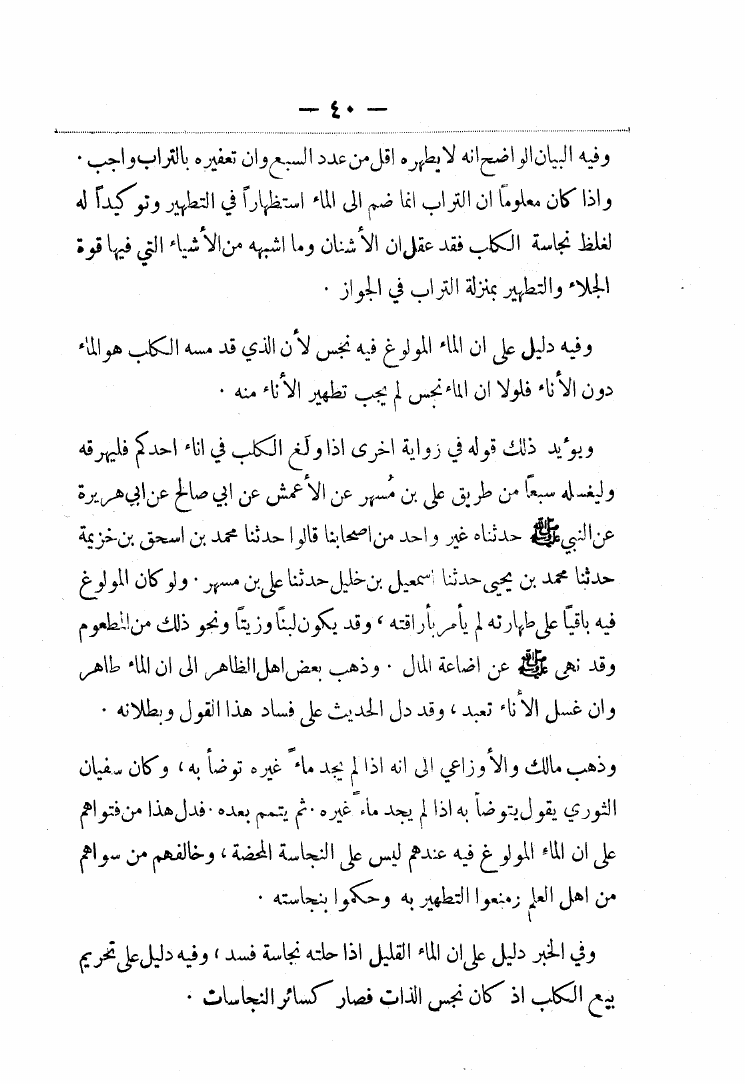 — ٤٠ —
وفيه البيان الواضح انه لا يطهره اقل من عدد السبع وان تعفيره بالتراب واجب .
واذا كان معلوماً ان التراب انما ضم الى الماء استظهاراً في التطهير وتوكيداً له
لغلظ نجاسة الكلب فقد عقل ان الأشنان وما اشبهه من الأشياء التي فيها قوة
الجلاء والتطهير بمنزلة التراب في الجواز .
وفيه دليل على ان الماء المولوغ فيه نجس لأن الذي قد مسه الكلب هو الماء
دون الأناء فلولا ان الماء نجس لم يجب تطهير الأناء منه .
ويؤيد ذلك قوله في رواية اخرى اذا ولَغ الكلب في اناء احدكم فليهرقه
وليغسله سبعاً من طريق علي بن مُسهر عن الأعمش عن ابي صالح عن ابي هريرة
عن النبي ﷺ حدثناه غير واحد من اصحابنا قالوا حدثنا محمد بن اسحق بن خزيمة
حدثنا محمد بن يحيى حدثنا اسمعيل بن خليل حدثنا علي بن مسهر . ولو كان المولوغ
فيه باقياً على طهارته لم يأمر بأراقته ، وقد يكون لبناً وزيتاً ونحو ذلك من المطعوم
وقد نهى ﷺ عن اضاعة المال . وذهب بعض اهل الظاهر الى ان الماء طاهر
وان غسل الأناء تعبد ، وقد دل الحديث على فساد هذا القول وبطلانه .
وذهب مالك والأوزاعي الى انه اذا لم يجد ماءً غيره توضأ به ، وكان سفيان
الثوري يقول يتوضأ به اذا لم يجد ماءً غيره . ثم يتمم بعده . فدل هذا من فتواهم
على ان الماء المولوغ فيه عندهم ليس على النجاسة المحضة ، وخالفهم من سواهم
من اهل العلم زمنعوا التطهير به وحكموا بنجاسته .
وفي الخبر دليل على ان الماء القليل اذا حلته نجاسة فسد ، وفيه دليل على تحريم
بيع الكلب اذ كان نجس الذات فصار كسائر النجاسات .